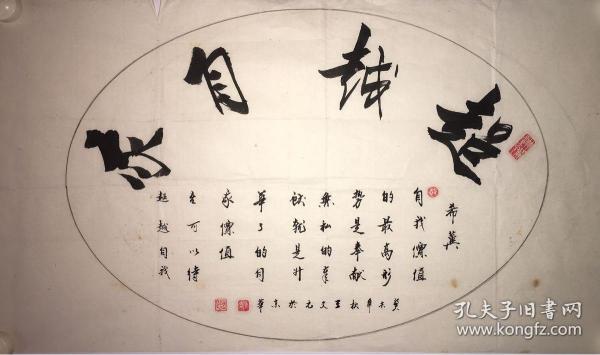 超越自我
希冀
自我價值
的最高形
势是奉献
無私的奉
献就是升
華了的自
家價值
可以
超越自我
癸未年秋王文元於京華
孔夫子旧书网
www.kongfz.com